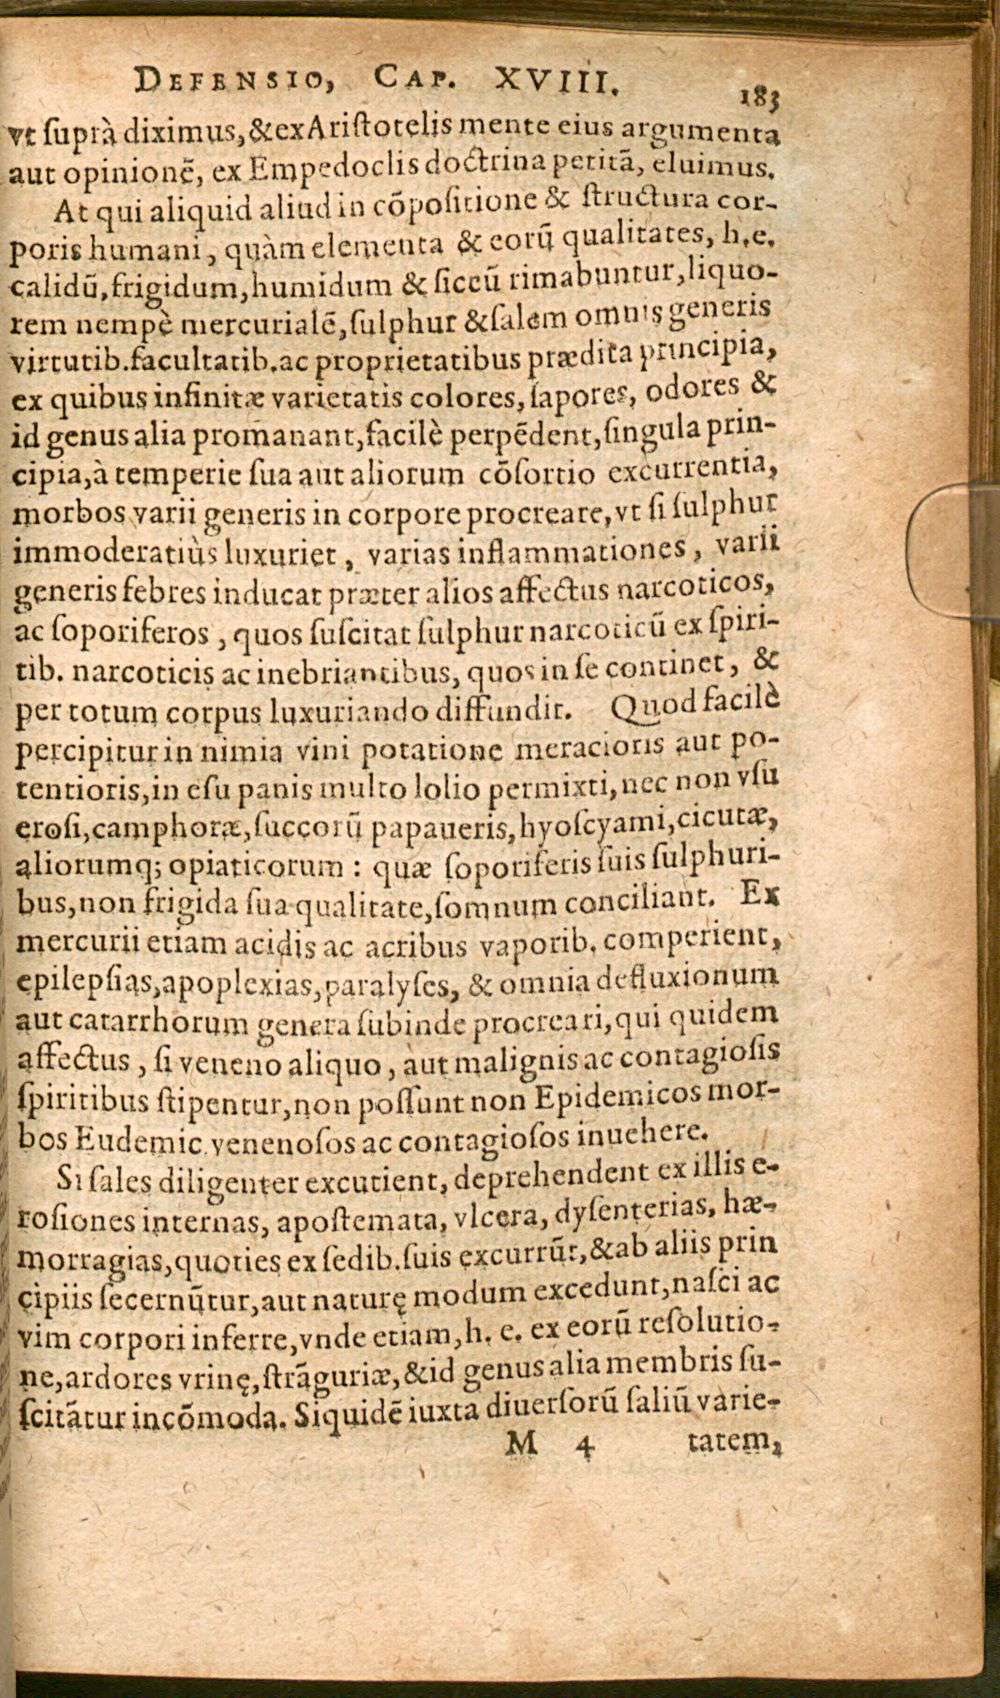 DEFENSIO, CAP. XVIII. 183
vt ſuprà diximus, & ex Ariſtotelis mente eius argumenta
aut opinionẽ, ex Empedoclis doctrina petitã, eluimus.
At qui aliquid aliud in cõpoſitione & ſtructura cor-
poris humani, quàm elementa & eorũ qualitates, h.e.
calidũ, frigidum, humidum & ſiccũ rimabuntur, liquo-
rem nempè mercurialẽ, ſulphur & ſalem omnis generis
virtutib. facultatib. ac proprietatibus prædita principia,
ex quibus infinitæ varietatis colores, ſapores, odores &
id genus alia promanant, facilè perpẽdent, ſingula prin-
cipia, à temperie ſua aut aliorum cõſortio excurrentia,
morbos varii generis in corpore procreare, vt ſi ſulphur
immoderatiùs luxuriet, varias inflammationes, varii
generis febres inducat præter alios affectus narcoticos,
ac ſoporiferos, quos ſuſcitat ſulphur narcoticũ ex ſpiri-
tib. narcoticis ac inebriantibus, quos in ſe continet, &
per totum corpus luxuriando diffundit. Quod facilè
percipitur in nimia vini potatione meracioris aut po-
tentioris, in eſu panis multo lolio permixti, nec non vſu
eroſi, camphoræ, ſuccorũ papaueris, hyoſcyami, cicutæ,
aliorumq; opiaticorum: quæ ſoporiferis ſuis ſulphuri-
bus, non frigida ſua qualitate, ſomnum conciliant. Ex
mercurii etiam acidis ac acribus vaporib. comperient,
epilepſias, apoplexias, paralyſes, & omnia defluxionum
aut catarrhorum genera ſubinde procreari, qui quidem
affectus, ſi veneno aliquo, aut malignis ac contagioſis
ſpiritibus ſtipentur, non poſſunt non Epidemicos mor-
bos Eudemic. venenoſos ac contagioſos inuehere.
Si ſales diligenter excutient, deprehendent ex illis e-
roſiones internas, apoſtemata, vlcera, dyſenterias, hæ-
morragias, quoties ex ſedib. ſuis excurrũt, & ab aliis prin
cipiis ſecernũtur, aut naturę modum excedunt, naſci ac
vim corpori inferre, vnde etiam, h. e. ex eorũ reſolutio-
ne, ardores vrinę, ſtrãguriæ, & id genus alia membris ſu-
ſcitãtur incõmoda. Siquidẽ iuxta diuerſorũ ſaliũ varie-
M 4 tatem,